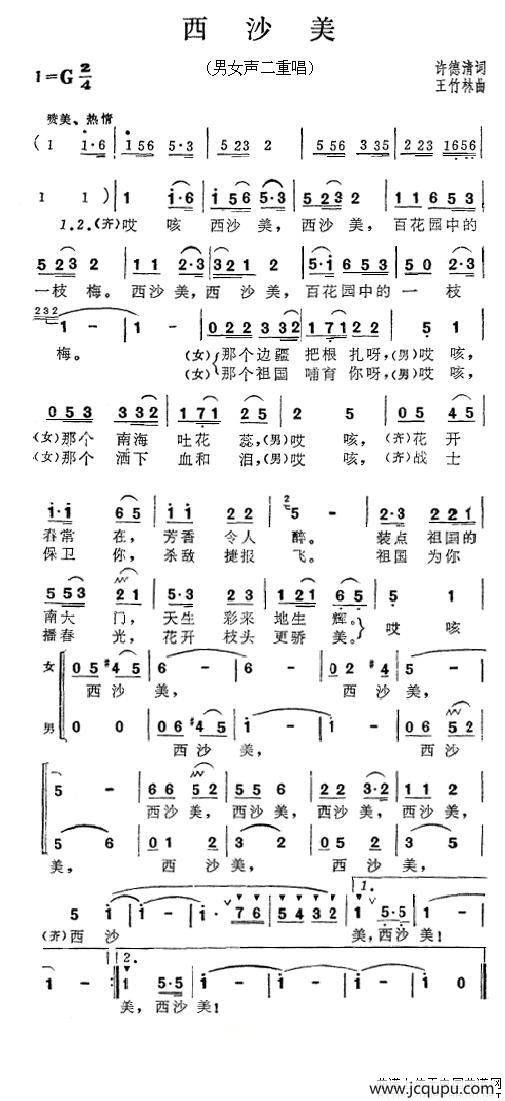 西沙美
(男女声二重唱)
1=G 2/4
许德清词
王竹林曲
赞美、热情
( 1 1·6 | 1 5 6 5·3 | 5 2 3 2 | 5 5 6 3 3 5 | 2 2 3 1 6 5 6 |
1 1 ) | 1 1·6 | 1 5 6 5·3 | 5 0 2 3 2 | 1 1 6 5 3 |
1.2.(齐)哎 咳 西沙美，西沙美，百花园中的
5 2 3 2 | 1 1 2·3 | 3 2 1 2 | 5·1 6 5 3 | 5 0 2·3 |
一枝 梅。西沙美，西沙美，百花园中的一枝
2 3 2
1 - | 1 - | 0 2 2 3 3 2 | 1 7 1 2 | 5 1 |
梅。 (女)那个边疆 把根扎呀，(男)哎 咳，
(女)那个祖国 哺育你呀，(男)哎 咳，
0 5 3 3 3 2 | 1 7 1 2 5 | 2 5 | 0 4 5 |
(女)那个 南海 吐花 蕊，(男)哎 咳， (齐)花 开
(女)那个 洒下 血和 泪，(男)哎 咳， (齐)战 士
1·1 6 5 | 1 1 2 2 | 5 - | 2·3 2 2 1 |
春常 在，芳香 令人 醉。 装点 祖国的
保卫 你，杀敌 捷报 飞。 祖国 为你
5 5 3 2 1 | 5·3 2 3 | 1 2 1 6 5 | 5 1 |
南大 门，天生 彩来 地生 辉。 哎 咳
播春 光，花开 枝头 更骄 美。
女 0 5 #4 5 | 6 - | 6 - | 0 2 #4 5 |
西沙 美， 西沙 美，
男 0 0 | 0 6 #4 5 | 1 - | 1 - | 0 6 5 2 |
西沙 美， 西沙
5 - | 6 6 5 2 | 5 5 6 | 2 2 3·2 | 1 1 2 |
西沙美，西沙美，西沙美，西沙美，
5 6 | 0 1 2 | 3 5 | 0 2 3 | 3 5 |
美， 西沙 美， 西沙 美，
1.
5 1 | 1 - | 1· 7 6 | 5 4 3 2 | 1 5·5 |
(齐)西 沙 美，西沙 美！
2.
1 - :| 1 5·5 | 1 - | 1 - | 1 - | 1 0 ‖
美，西沙 美！
www.jcqupu.com